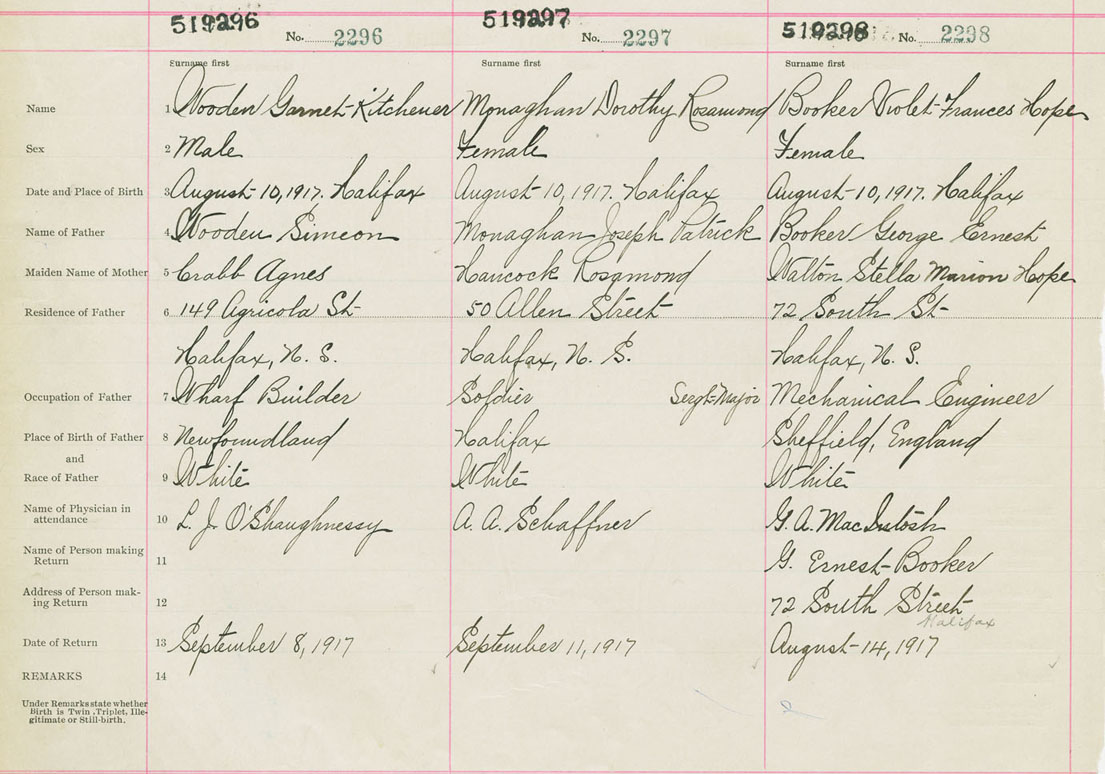 519296 519297 519298
No. 2296 No. 2297 No. 2298
Surname first Surname first Surname first
Name 1 Wooden Garnet Kitchener Monaghan Dorothy Rosamond Booker Violet Frances Hope
Sex 2 Male Female Female
Date and Place of Birth 3 August 10, 1917. Halifax August 10, 1917. Halifax August 10, 1917. Halifax
Name of Father 4 Wooden Simeon Monaghan Joseph Patrick Booker George Ernest
Maiden Name of Mother 5 Crabb Agnes Hancock Rosamond Walton Stella Marion Hope
Residence of Father 6 149 Agricola St 50 Allen Street 72 South St
Halifax, N. S. Halifax, N. S. Halifax, N. S.
Occupation of Father 7 Wharf Builder Soldier Sergt-Major Mechanical Engineer
Place of Birth of Father 8 Newfoundland Halifax Sheffield, England
and
Race of Father 9 White White White
Name of Physician in
attendance 10 L. J. O'Shaughnessy A. A. Schaffner G. A. MacIntosh
Name of Person making
Return 11 G. Ernest Booker
Address of Person mak-
ing Return 12 72 South Street
Halifax
Date of Return 13 September 8, 1917 September 11, 1917 August 14, 1917
REMARKS 14
Under Remarks state whether
Birth is Twin, Triplet, Ille-
gitimate or Still-birth.